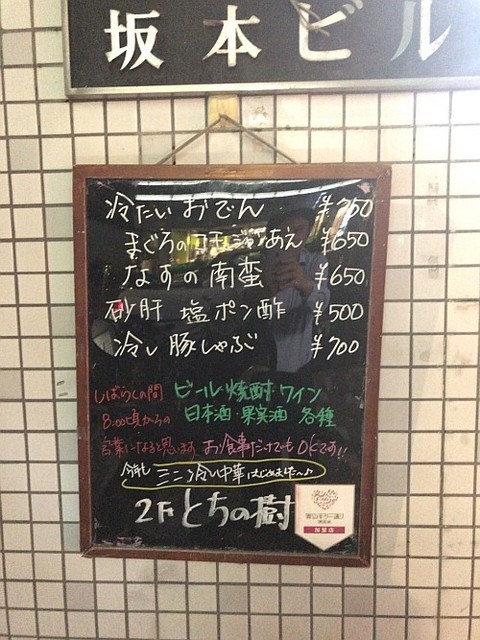 坂本ビル
冷たいおでん
まぐろのコチジャンあえ ¥650
なすの南蛮 ¥650
砂肝 塩ポン酢 ¥500
冷し豚しゃぶ ¥700
しばらくの間 ビール・焼酎・ワイン
8:00頃からの 日本酒・果実酒 各種
営業になると思います。お食事だけでもOKです!!
今年も ミニ冷し中華はじめました〜♪
2F とちの樹
青山キラー通り
商店会
加盟店